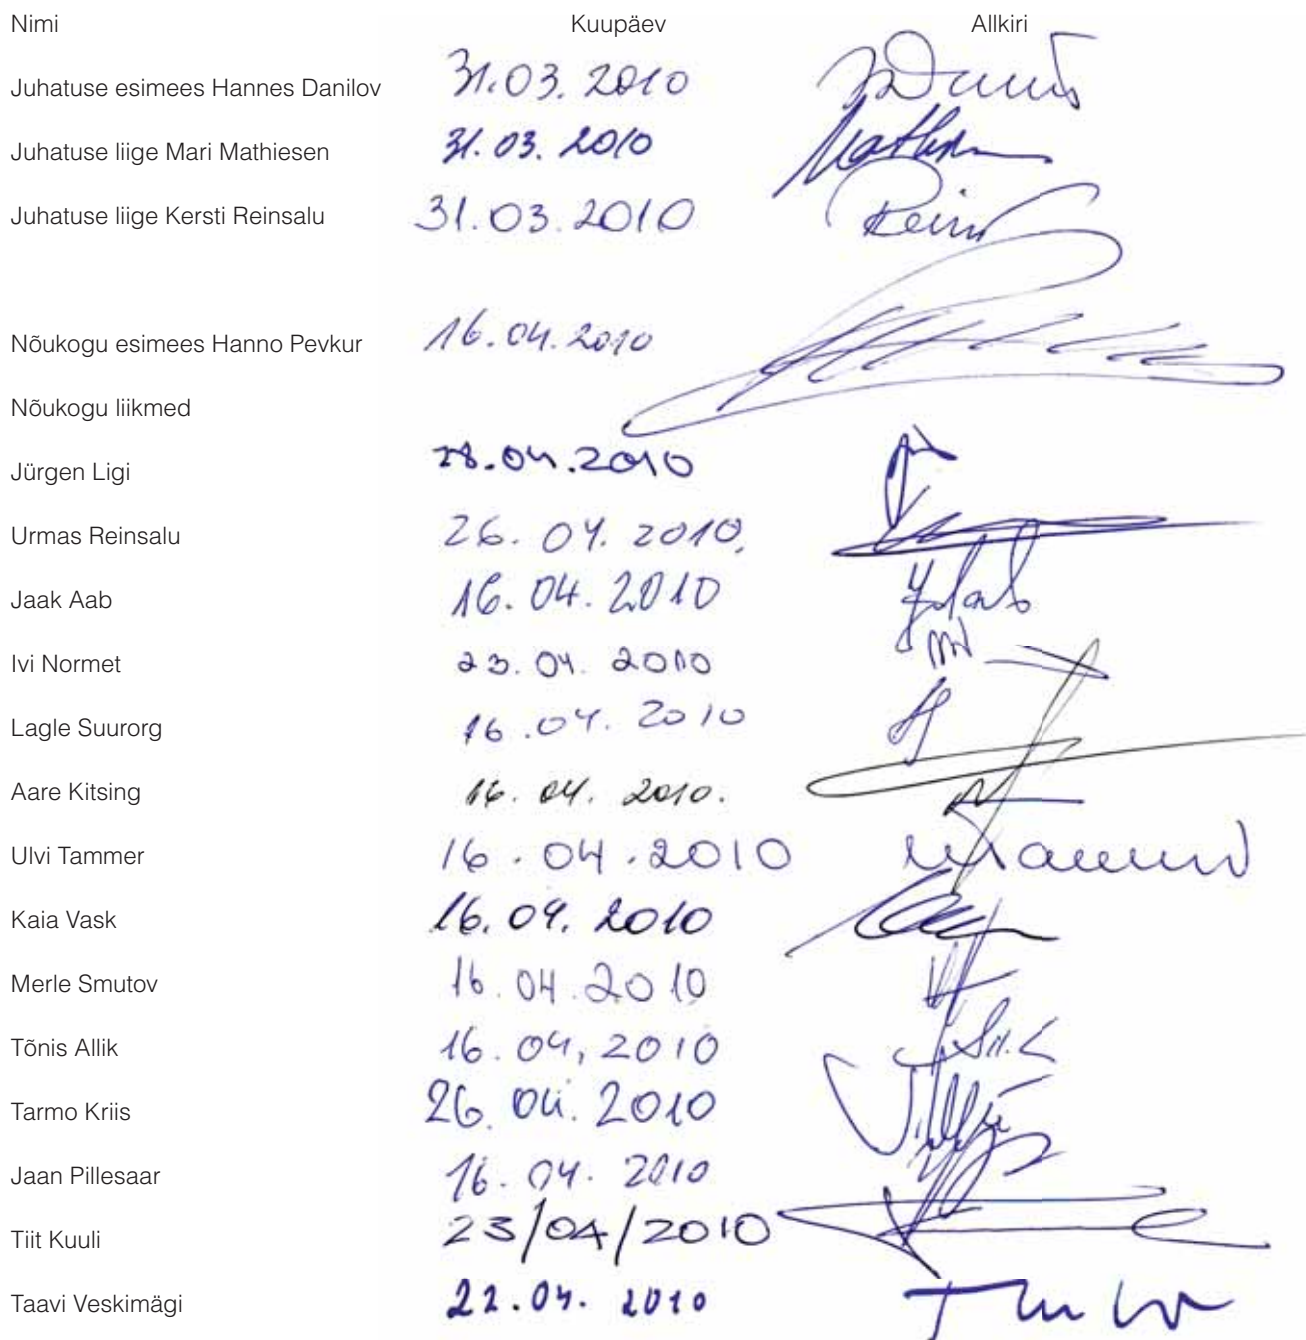 Nimi Kuupäev Allkiri
Juhatuse esimees Hannes Danilov 31.03.2010
Juhatuse liige Mari Mathiesen 31.03.2010
Juhatuse liige Kersti Reinsalu 31.03.2010
Nõukogu esimees Hanno Pevkur 16.04.2010
Nõukogu liikmed
Jürgen Ligi 28.04.2010
Urmas Reinsalu 26.04.2010.
Jaak Aab 16.04.2010
Ivi Normet 23.04.2010
Lagle Suurorg 16.04.2010
Aare Kitsing 16.04.2010.
Ulvi Tammer 16.04.2010
Kaia Vask 16.04.2010
Merle Smutov 16.04.2010
Tõnis Allik 16.04,2010
Tarmo Kriis 26.04.2010
Jaan Pillesaar 16.04.2010
Tiit Kuuli 23/04/2010
Taavi Veskimägi 22.04.2010